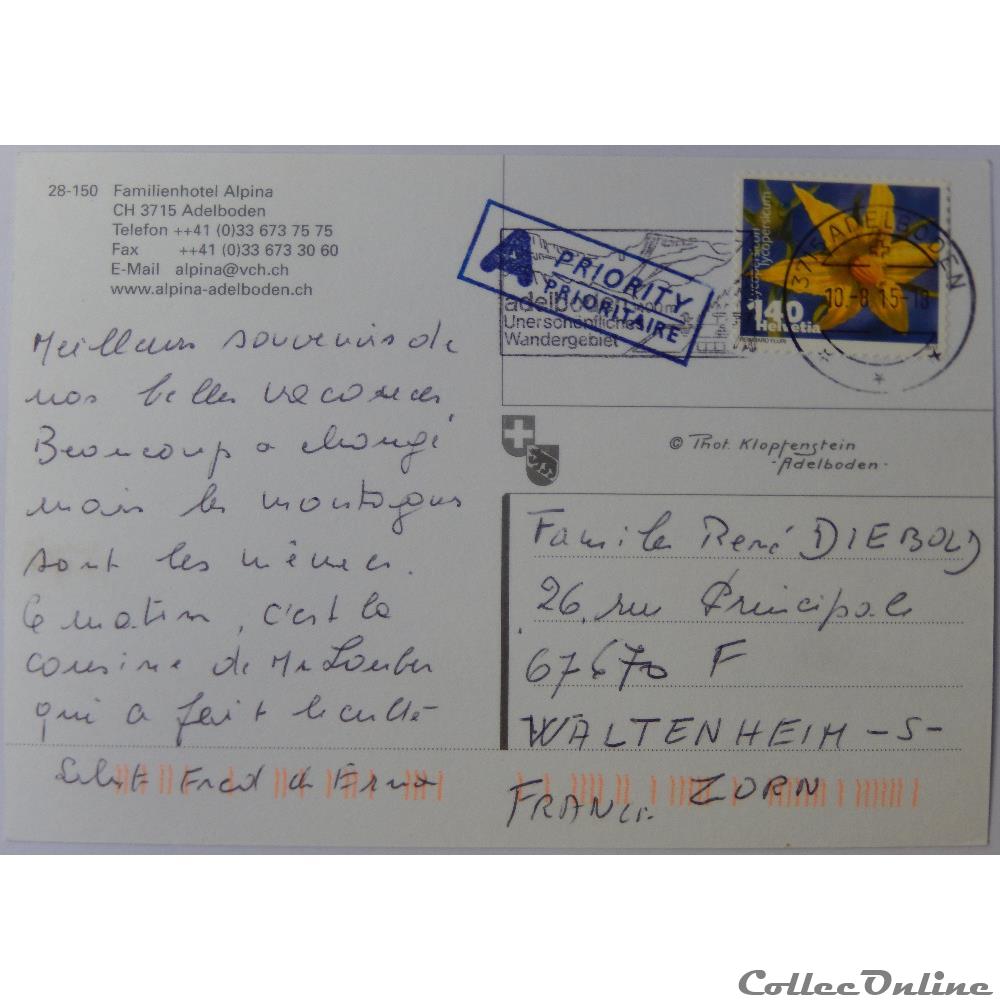 28-150 Familienhotel Alpina
CH 3715 Adelboden
Telefon ++41 (0)33 673 75 75
Fax ++41 (0)33 673 30 60
E-Mail alpina@vch.ch
www.alpina-adelboden.ch
Meilleurs souvenirs de
nos belles vacances.
Beaucoup a changé
mais les montagnes
sont les mêmes.
Ce matin, c'est la
cousine de Mr
qui a fait le culte
Salut Fred &
A PRIORITY
PRIORITAIRE
adelboden
Unerschöpfliches
Wandergebiet
Lycopersicon lycopersicum
140
Helvetia
3715 ADELBODEN
10.-8.15-18
© Phot. Klopfenstein
-Adelboden-
Famille René DIEBOLD
26, rue Principale
67670 F
WALTENHEIM -S-
ZORN
FRANCE
CollecOnline